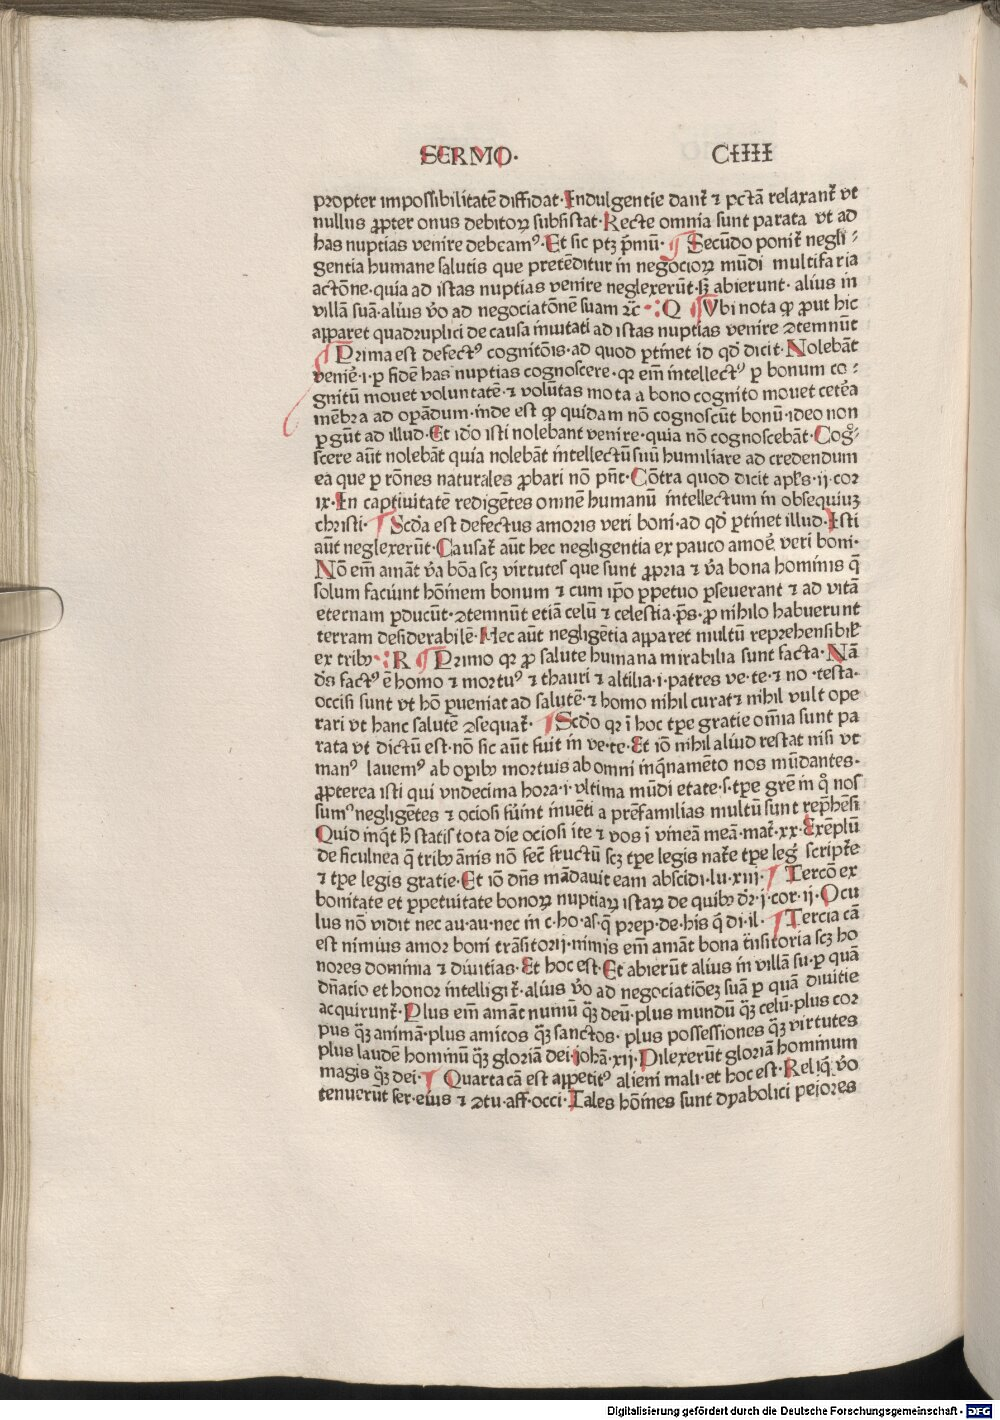 SERMO· CIIII
propter impossibilitatē diffidat·Indulgentie dant̄ ⁊ pctā relaxant̄ vt
nullus ꝓpter onus debitoꝝ subsistat·Recte omnia sunt parata vt ad
has nuptias venire debeamꝰ·Et sic ptꝫ p̄mū· ¶ Secūdo ponit̄ negli⸗
gentia humane salutis que pretēditur in negocioꝝ mūdi multifaria
actōne·quia ad istas nuptias venire neglexerūt·sꝫ abierunt· alius in
villā suā·alius v̄o ad negociatōnē suam ⁊c̄ ·:Q ¶ Vbi nota ꝙ ꝓut hic
apparet quadruplici de causa inuitati ad istas nuptias venire ꝯtemnūt
¶ Prima est defectꝰ cognitōis·ad quod ꝑtinet id qd̄ dicit·Nolebāt
venir̄e·i·ꝑ fidē has nuptias cognoscere·qr em̄ intellectꝰ ꝑ bonum co⸗
gnitū mouet voluntatē·⁊ volūtas mota a bono cognito mouet ceter̄a
mēbra ad oꝑādum·inde est ꝙ quidam nō cognoscūt bonū·ideo non
ꝑgūt ad illud·Et id̄o isti nolebant venire·quia nō cognoscebāt·Cogͦ⸗
scere aūt nolebāt quia nolebāt intellectū suū humiliare ad credendum
ea que ꝑ rōnes naturales ꝓbari nō pn̄t·Cōtra quod dicit apls·ij·cor
ix·In captiuitatē redigētes omnē humanū intellectum in obsequiuꝫ
christi· ¶ Scd̄a est defectus amoris veri boni·ad qd̄ ꝑtinet illud·Isti
aūt neglexerūt·Causat̄ aūt hec negligentia ex pauco amor̄e veri boni·
Nō em̄ amāt v̄a bōa scꝫ virtutes que sunt ꝓpria ⁊ v̄a bona hominis q̄
solum faciunt hōīem bonum ⁊ cum ip̄o ꝑpetuo ꝑseuerant ⁊ ad vitā
eternam ꝑducūt·ꝯtemnūt etiā celū ⁊ celestia·ps̄·ꝓ nihilo habuerunt
terram desiderabilē·Hec aūt negligētia apparet multū reprehensibil̄
ex tribꝰ·:R ¶ Primo qr ꝓ salute humana mirabilia sunt facta·Nā
ds̄ factꝰ ē homo ⁊ mortuꝰ ⁊ thauri ⁊ altilia·i·patres ve·te·⁊ no·testa·
occisi sunt vt hō ꝑueniat ad salutē·⁊ homo nihil curat ⁊ nihil vult ope
rari vt hanc salutē ꝯsequat̄· ¶ Scd̄o qr ī hoc tp̄e gratie om̄ia sunt pa
rata vt dictū est·nō sic aūt fuit in ve·te·Et iō nihil aliud restat nisi vt
manꝰ lauemꝰ ab oꝑibꝰ mortuis ab omni inq̄namēto nos mūdantes·
ꝓpterea isti qui vndecima hora·i·vltima mūdi etate·s·tp̄e gr̄e in qͦ nos
sumꝰ negligētes ⁊ ociosi fūīnt inuēti a pr̄efamilias multū sunt rep̄hēsi
Quid inq̄t h̄ statis tota die ociosi ite ⁊ vos ī vineā meā·mat̄·xx·Exēplū
de ficulnea q̄ tribꝰ ānis nō fec̄ fructū scꝫ tp̄e legis nat̄e tp̄e leḡ script̄e
⁊ tp̄e legis gratie·Et iō dn̄s mādauit eam abscidi·lu·xiij· ¶ Tercō ex
bonitate et ꝑpetuitate bonoꝝ nuptiaꝝ istaꝝ de quibꝰ dr̄·j·cor·ij·Ocu
lus nō vidit nec au·au·nec in c·ho·as·q̄ prep·de·his q̄ di·il· ¶ Tercia cā
est nimius amor boni trāsitorij·nimis em̄ amāt bona tn̄sitoria scꝫ ho
nores dominia ⁊ diuitias·Et hoc est·Et abierūt alius in villā su·ꝑ quā
dn̄atio et honor intelligit̄·alius v̄o ad negociatiōeꝫ suā ꝑ quā diuitie
acquirunt̄·Plus em̄ amāt numū qꝫ̄ deū·plus mundū qꝫ̄ celū·plus cor
pus qꝫ̄ animā·plus amicos qꝫ̄ sanctos·plus possessiones qꝫ̄ virtutes
plus laudē hominū qꝫ̄ gloriā dei·johā·xij·Dilexerūt gloriā hominum
magis qꝫ̄ dei· ¶ Quarta cā est appetitꝰ alieni mali·et hoc est·Reliq̄ v̄o
tenuerūt ser·eius ⁊ ꝯtu·aff·occi·Tales hōīes sunt dyabolici peiores
Digitalisierung gefördert durch die Deutsche Forschungsgemeinschaft - DFG